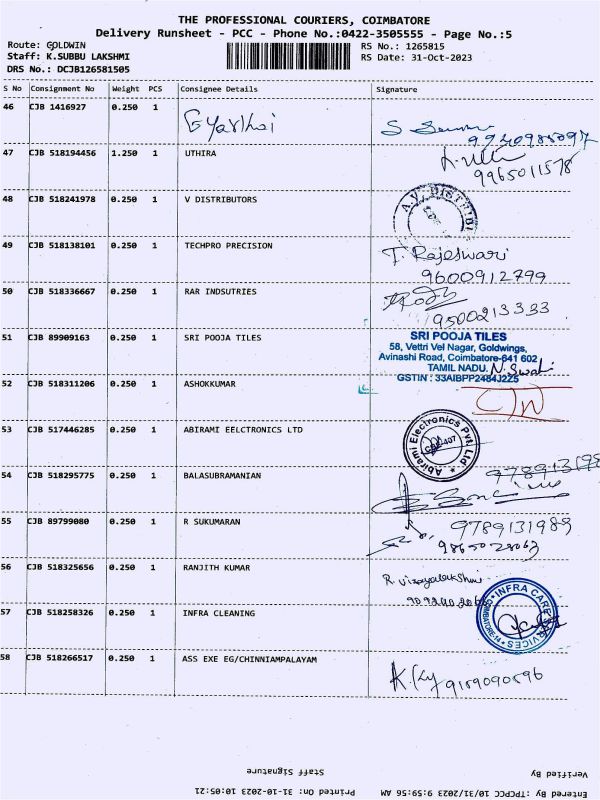 THE PROFESSIONAL COURIERS, COIMBATORE
Delivery Runsheet - PCC - Phone No.:0422-3505555 - Page No.:5
Route: GOLDWIN
RS No.: 1265815
Staff: K.SUBBU LAKSHMI
RS Date: 31-Oct-2023
DRS No.: DCJB126581505
S No Consignment No Weight PCS Consignee Details Signature
46 CJB 1416927 0.250 1
47 CJB 518194456 1.250 1 UTHIRA
9965011578
48 CJB 518241978 0.250 1 V DISTRIBUTORS
A.V. DISTRIBU
49 CJB 518138101 0.250 1 TECHPRO PRECISION
T. Rajeswari
9600912799
50 CJB 518336667 0.250 1 RAR INDSUTRIES
9500213333
51 CJB 89909163 0.250 1 SRI POOJA TILES
SRI POOJA TILES
58, Vettri Vel Nagar, Goldwings,
Avinashi Road, Coimbatore-641 602
TAMIL NADU. N. Swathi
GSTIN : 33AIBPP2484J2Z5
52 CJB 518311206 0.250 1 ASHOKKUMAR
53 CJB 517446285 0.250 1 ABIRAMI EELCTRONICS LTD
Abirami Electronics Pvt Ltd
54 CJB 518295775 0.250 1 BALASUBRAMANIAN
55 CJB 89799080 0.250 1 R SUKUMARAN
9789131989
56 CJB 518325656 0.250 1 RANJITH KUMAR
R. Vijayalakshmi
57 CJB 518258326 0.250 1 INFRA CLEANING
INFRA CARE SERVICES
58 CJB 518266517 0.250 1 ASS EXE EG/CHINNIAMPALAYAM
9159090596
Staff Signature
Verified By
Printed On: 31-10-2023 10:05:21
Entered By: TPCPCC 10/31/2023 9:59:56 AM